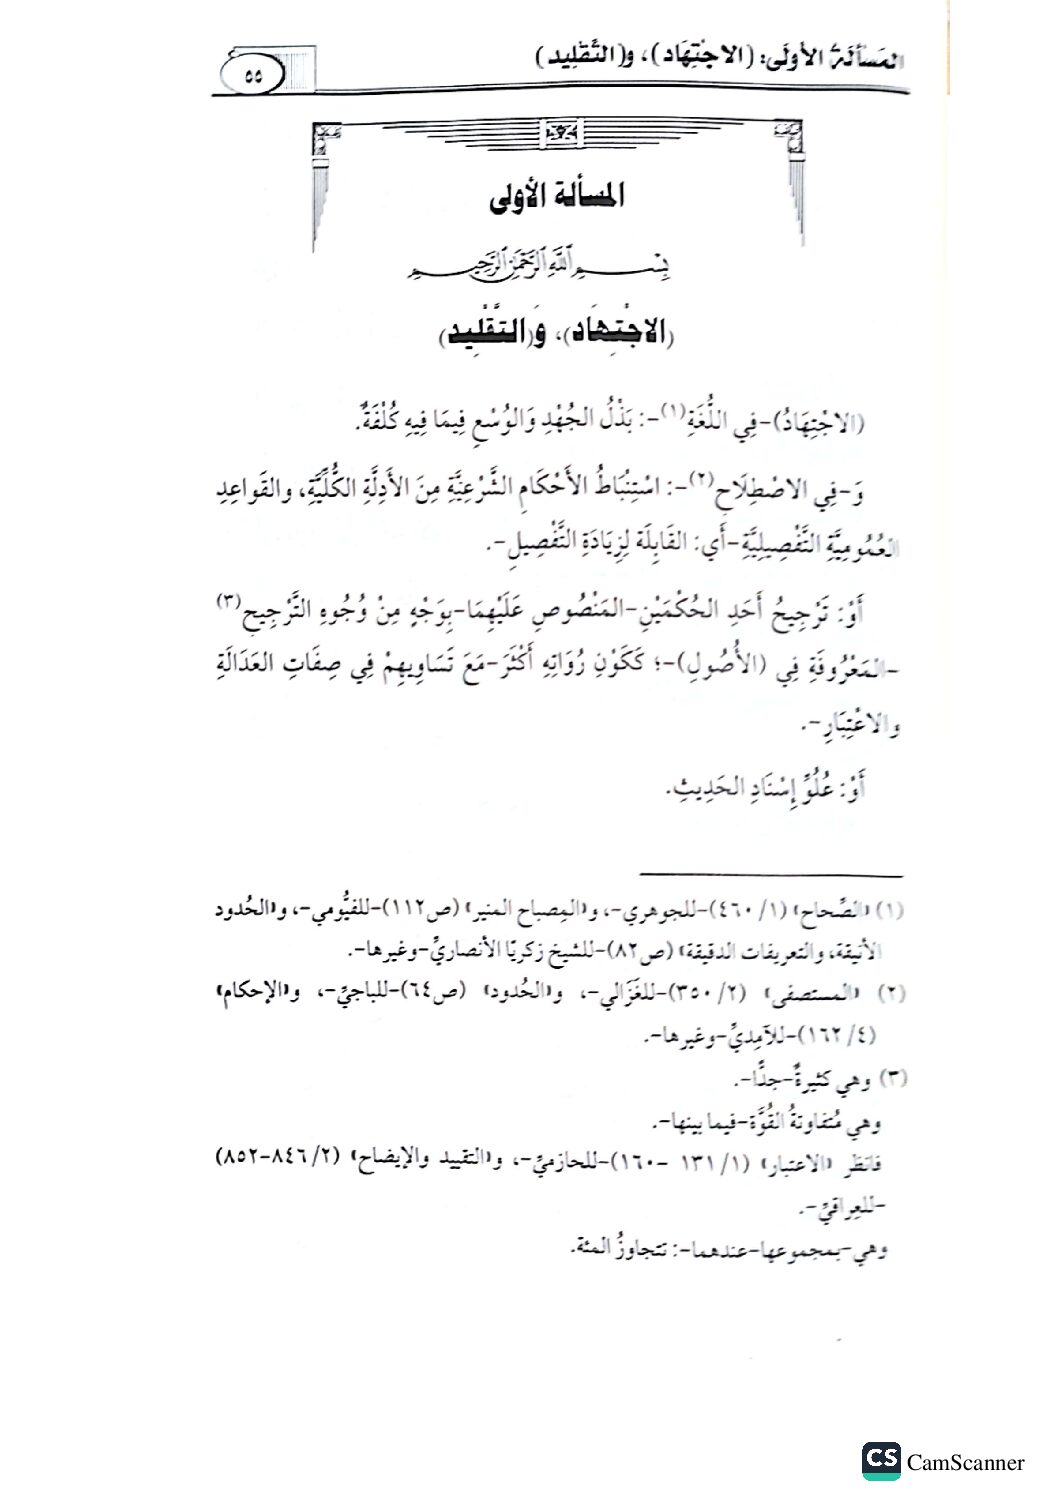 المَسألَةُ الأولَى: (الاجْتِهَاد)، و(التَّقْلِيد)
٥٥
المسألة الأولى
بِسْمِ اللَّهِ الرَّحْمَنِ الرَّحِيمِ
(الاجْتِهَاد)، وَ(التَّقْلِيد)
(الاجْتِهَادُ)-فِي اللُّغَةِ(١)-: بَذْلُ الجُهْدِ وَالوُسْعِ فِيمَا فِيهِ كُلْفَةٌ.
وَ-فِي الاصْطِلَاحِ(٢)-: اسْتِنْبَاطُ الأَحْكَامِ الشَّرْعِيَّةِ مِنَ الأَدِلَّةِ الكُلِّيَّةِ، والقَواعِدِ
العُمُومِيَّةِ التَّفْصِيلِيَّةِ-أَي: القَابِلَة لِزِيَادَةِ التَّفْصِيلِ-.
أَوْ: تَرْجِيحُ أَحَدِ الحُكْمَيْنِ-المَنْصُوصِ عَلَيْهِمَا-بِوَجْهٍ مِنْ وُجُوهِ التَّرْجِيحِ(٣)
-المَعْرُوفَةِ فِي (الأُصُولِ)-؛ كَكَوْنِ رُوَاتِهِ أَكْثَرَ-مَعَ تَسَاوِيهِمْ فِي صِفَاتِ العَدَالَةِ
والاعْتِبَارِ-.
أَوْ: عُلُوِّ إِسْنَادِ الحَدِيثِ.
(١) «الصِّحاح» (١/ ٤٦٠)-للجوهري-، و«المِصباح المنير» (ص١١٢)-للفيُّومي-، و«الحُدود
الأنيقة، والتعريفات الدقيقة» (ص٨٢)-للشيخ زكريّا الأنصاريِّ-وغيرها-.
(٢) «المستصفى» (٢/ ٣٥٠)-للغَزَالي-، و«الحُدود» (ص٦٤)-للباجيِّ-، و«الإحكام»
(٤/ ١٦٢)-للآمِديِّ-وغيرها-.
(٣) وهي كثيرةٌ-جدًّا-.
وهي مُتفاوتةُ القُوَّة-فيما بينها-.
فانظر «الاعتبار» (١/ ١٣١ -١٦٠)-للحازميِّ-، و«التقييد والإيضاح» (٢/ ٨٤٦-٨٥٢)
-للعِراقيِّ-.
وهي-بمجموعها-عندهما-: تتجاوزُ المئة.
CS CamScanner